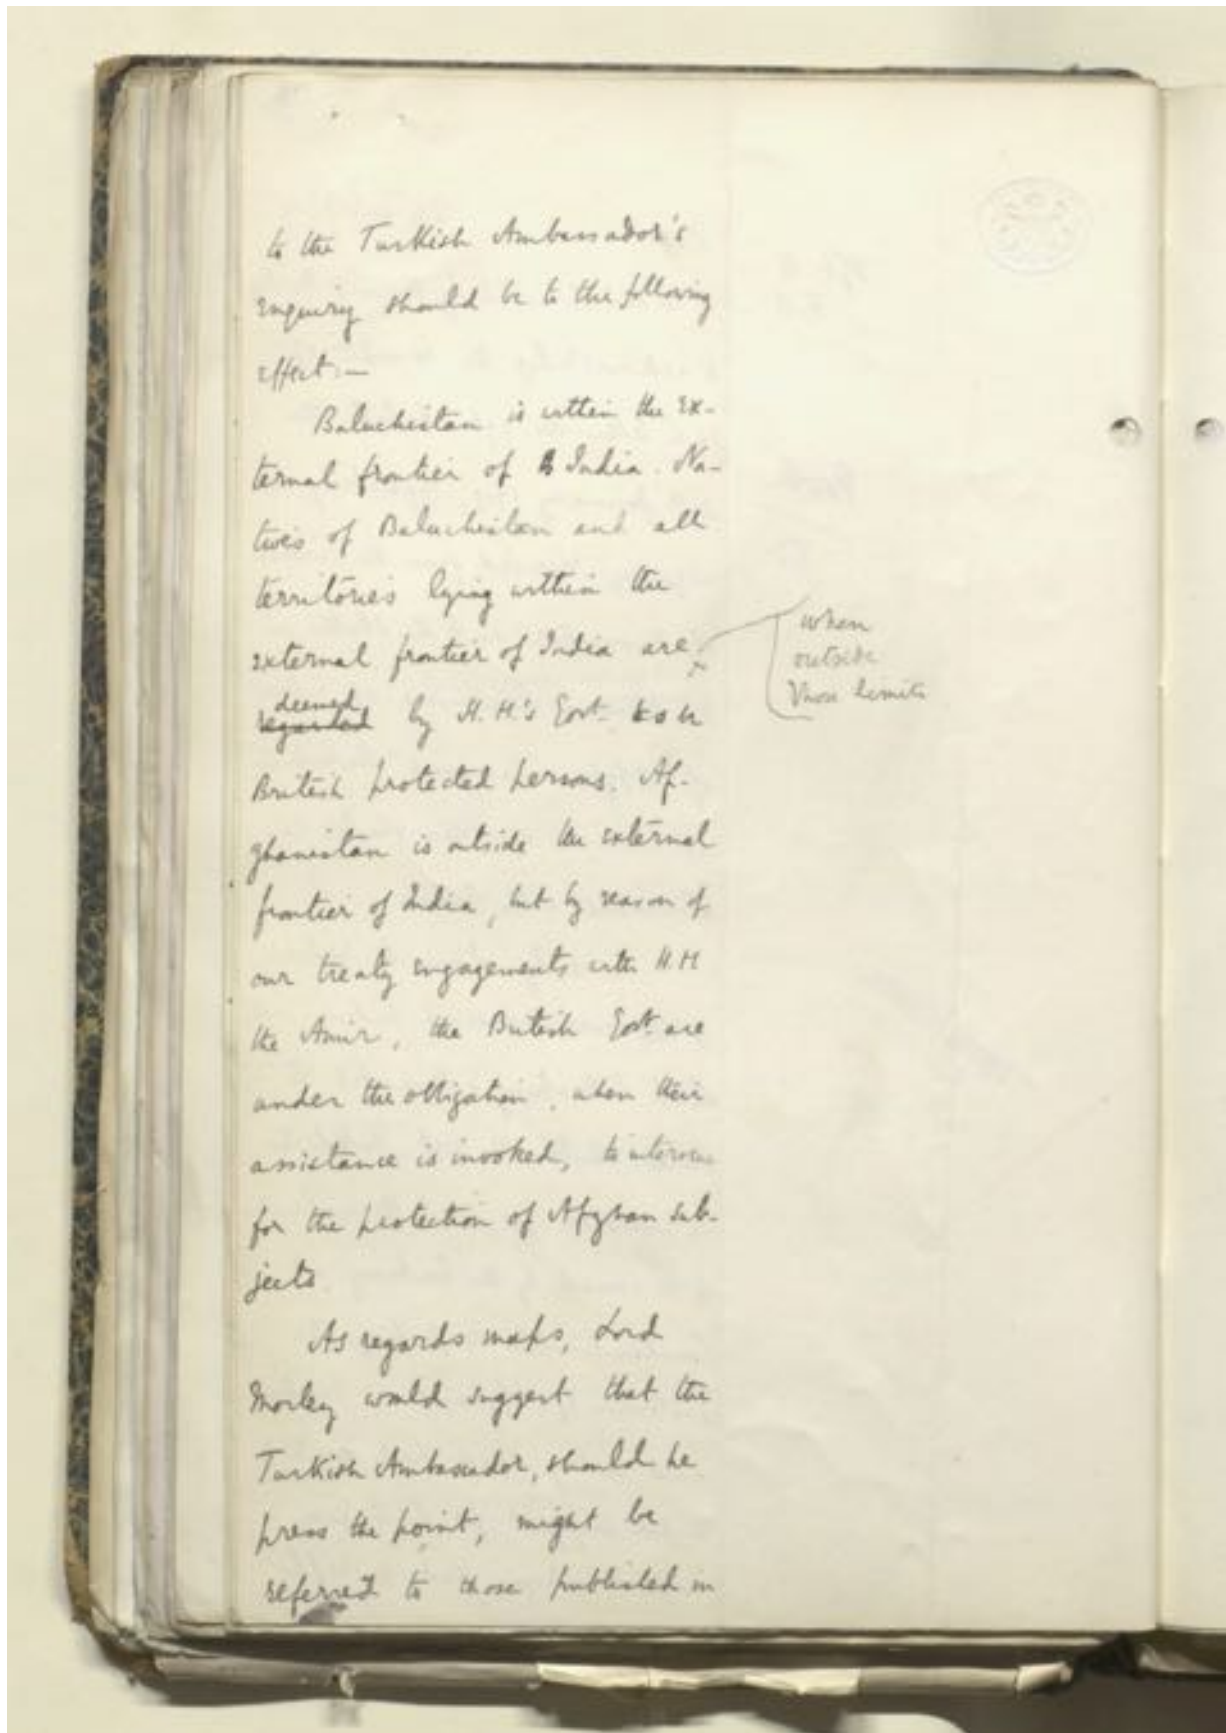 to the Turkish Ambassador's
enquiry should be to the following
effect:—
Baluchistan is within the ex-
ternal frontier of India. Na-
tives of Baluchistan and all
territories lying within the
external frontier of India are
when
outside
those limits
deemed
regarded by H.M.'s Govt. to be
British protected persons. Af-
ghanistan is outside the external
frontier of India, but by reason of
our treaty engagements with H.H
the Amir, the British Govt. are
under the obligation, when their
assistance is invoked, to intervene
for the protection of Afghan sub-
jects
As regards maps, Lord
Morley would suggest that the
Turkish Ambassador, should he
press the point, might be
referred to those published in